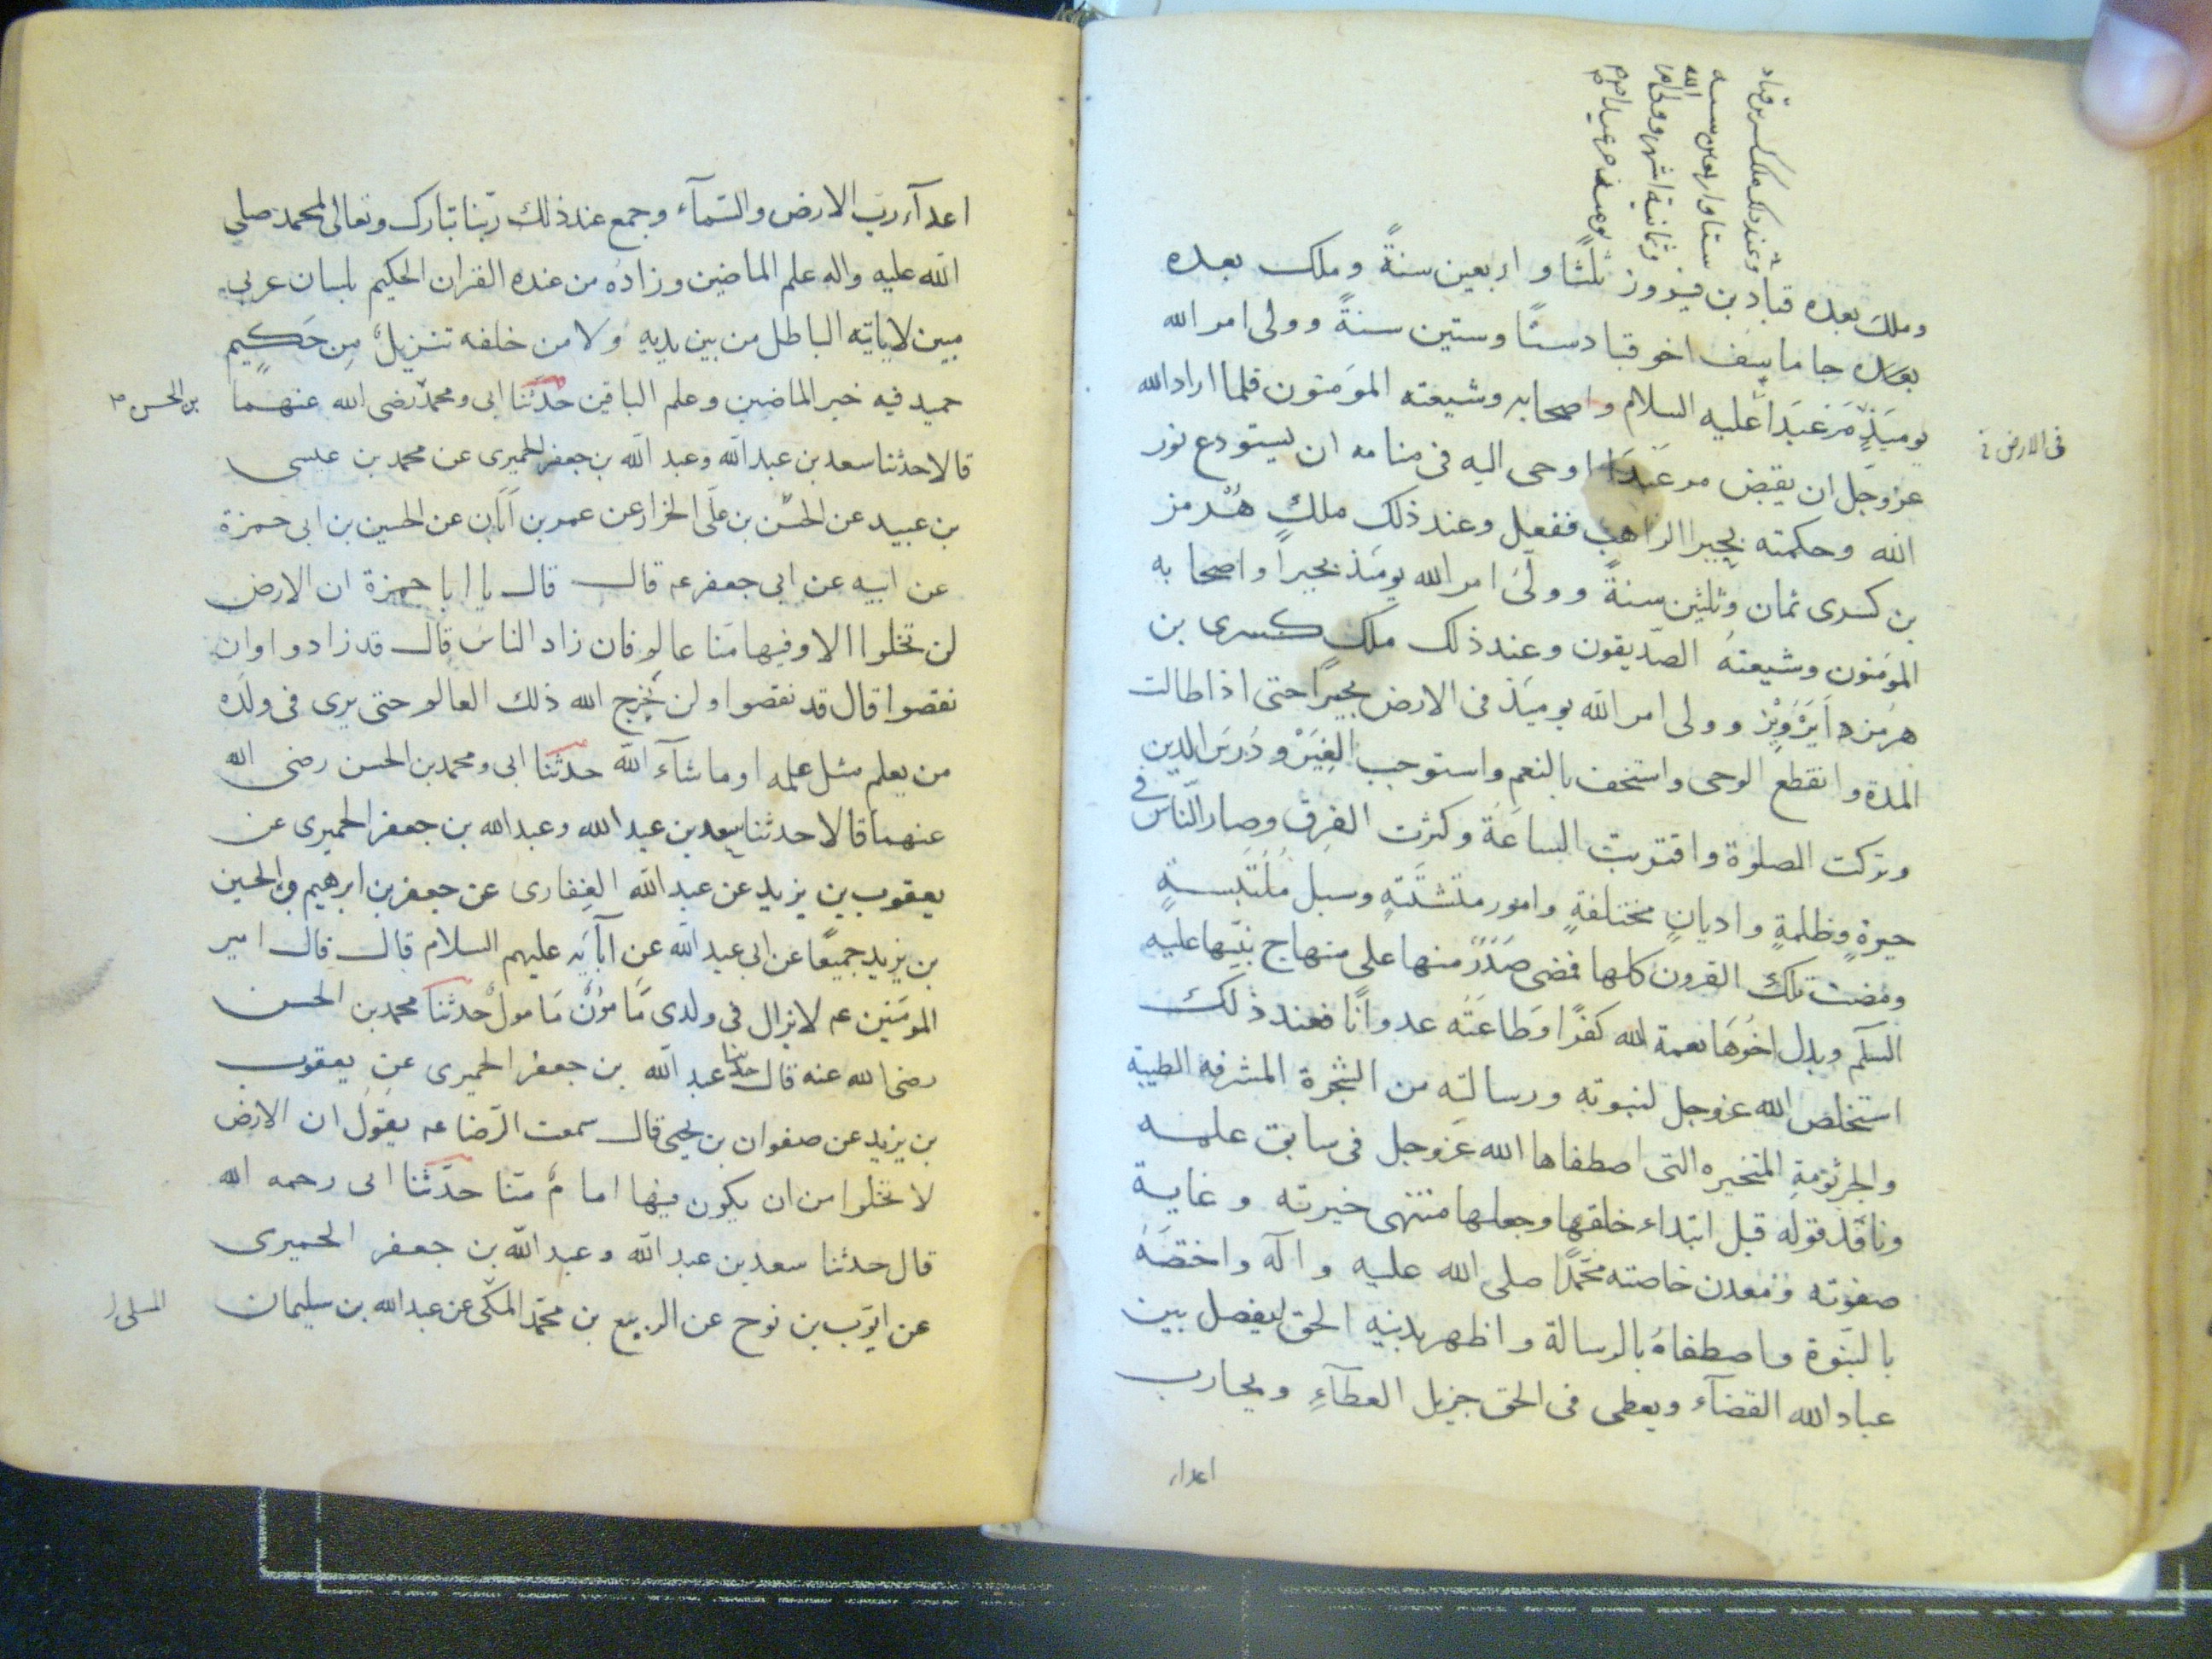 وعند ذلك ملك كسرى بن قباد
ستا واربعين سنة
وثمانية اشهر وولى امر الله
يومئذ مرعيدا ع م
وملك بعده قباد بن فيروز ثلثًا واربعين سنةً وملك بعده
بعده جاماسف اخو قباد ستًا وستين سنةً وولى امر الله
يوميَذٍ مَرعَبَدَا عليه السلام واصحابه وشيعته المومنون فلما اراد الله
فى الارض
عز وجل ان يقبض مرعَبَدَا اوحى اليه فى منامه ان يستودع نور
الله وحكمته بحيرا الراهب ففعل وعند ذلك ملك هُرمز
بن كسرى ثمان وثلثين سنةً وولى امر الله يومئذ بحيراً واصحابه
المومنون وشيعتهُ الصّديقون وعند ذلك ملك كسرى بن
هرمزد اَبَرْوِيْز وولى امر الله يوميَذ فى الارض بحيرًا حتى اذا طالت
المدة وانقطع الوحى واستخف بالنعم واستوجب الغِيَرْ ودُرِسَ الدين
وتركت الصلوة واقتربت الساعَة وكثرت الفِرق وصار النّاس فى
حيرةٍ وظلمةٍ واديانٍ مختلفةٍ وامور متشتّتةٍ وسبل مُلتَبسةٍ
ومضت تلك القرون كلها فمضى صَدَرٌ منها على منهاج نبيّها عليه
السلم وبدل اخُرهَا نعمة الله كفرًا وطاعَتَه عدوانًا فعند ذلك
استخلص الله عز وجل لنبوته ورسالته من الشجرة المشرفه الطيبة
والجرثومةِ المتخيره التى اصطفاها الله عز وجل فى سابق علمه
ونافذ قوله قبل ابتداء خلقها وجعلها منتهى خيرته وغاية
صفوته ومعدن خاصته محمّدًا صلى الله عليه وآله واختصّهَ
بالنبوة واصطفاهُ بالرسالة واظهر بدينه الحق ليفصل بين
عباد الله القضآء ويعطى فى الحق جزيل العطآءِ ويحارب
اعداء
اعدآء ربّ الارض والسّمآء وجمع عند ذلك ربّنا تبارك وتعالى لمحمد صلى
الله عليه واله علم الماضين وزادهُ من عنده القران الحكيم بلسان عربى
مبين لا ياتيه الباطل من بين يديه ولا من خلفه تنزيلٌ مِن حَكيمٍ
حميد فيه خبر الماضين وعلم الباقين حدّثنا ابى ومحمد رضى الله عنهما
بن الحسن
قالا حدثنا سعد بن عبد الله وعبد الله بن جعفر الحميرى عن محمد بن عيسى
بن عبيد عن الحسَن بن على الخزاز عن عمر بن اَبَان عن الحسين بن ابى حمزة
عن ابيه عن ابى جعفر عم قال قال يا ابا حمزة ان الارض
لن تخلوا الا وفيها منّا عالم فان زاد الناس قال قد زادوا وان
نقصوا قال قد نقصوا ولن يخرج الله ذلك العالم حتى يرى فى ولده
من يعلم مثل علمه او ما شآء الله حدثنا ابى ومحمد بن الحسن رضى الله
عنهما قالا حدثنا سعد بن عبد الله وعبد الله بن جعفر الحميرى عن
يعقوب بن يزيد عن عبد الله الغِفارى عن جعفر بن ابرهيم والحسين
بن يزيد جميعًا عن ابى عبد الله عن آبآيه عليهم السلام قال قال امير
المومنين عم لا يزال فى ولدى مَامونٌ مَامولٌ حدثنا محمد بن الحسن
رضى الله عنه قال حدثنا عبد الله بن جعفر الحميرى عن يعقوب
بن يزيد عن صفوان بن يحيى قال سمعت الرّضا عم يقول ان الارض
لا تخلوا من ان يكون فيها امامٌ منّا حدّثنا ابى رحمه الله
قال حدثنا سعد بن عبد الله وعبد الله بن جعفر الحميرى
عن ايوب بن نوح عن الربيع بن محمّد المكّى عن عبد الله بن سليمان
المسلى